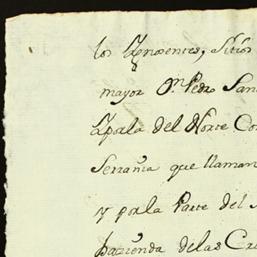 los Ynosentes, Sitios
mayor Dn. Pedro San
Y por la del Norte Co
Serrania que llaman
y por la Parte del
hazienda de las Cr